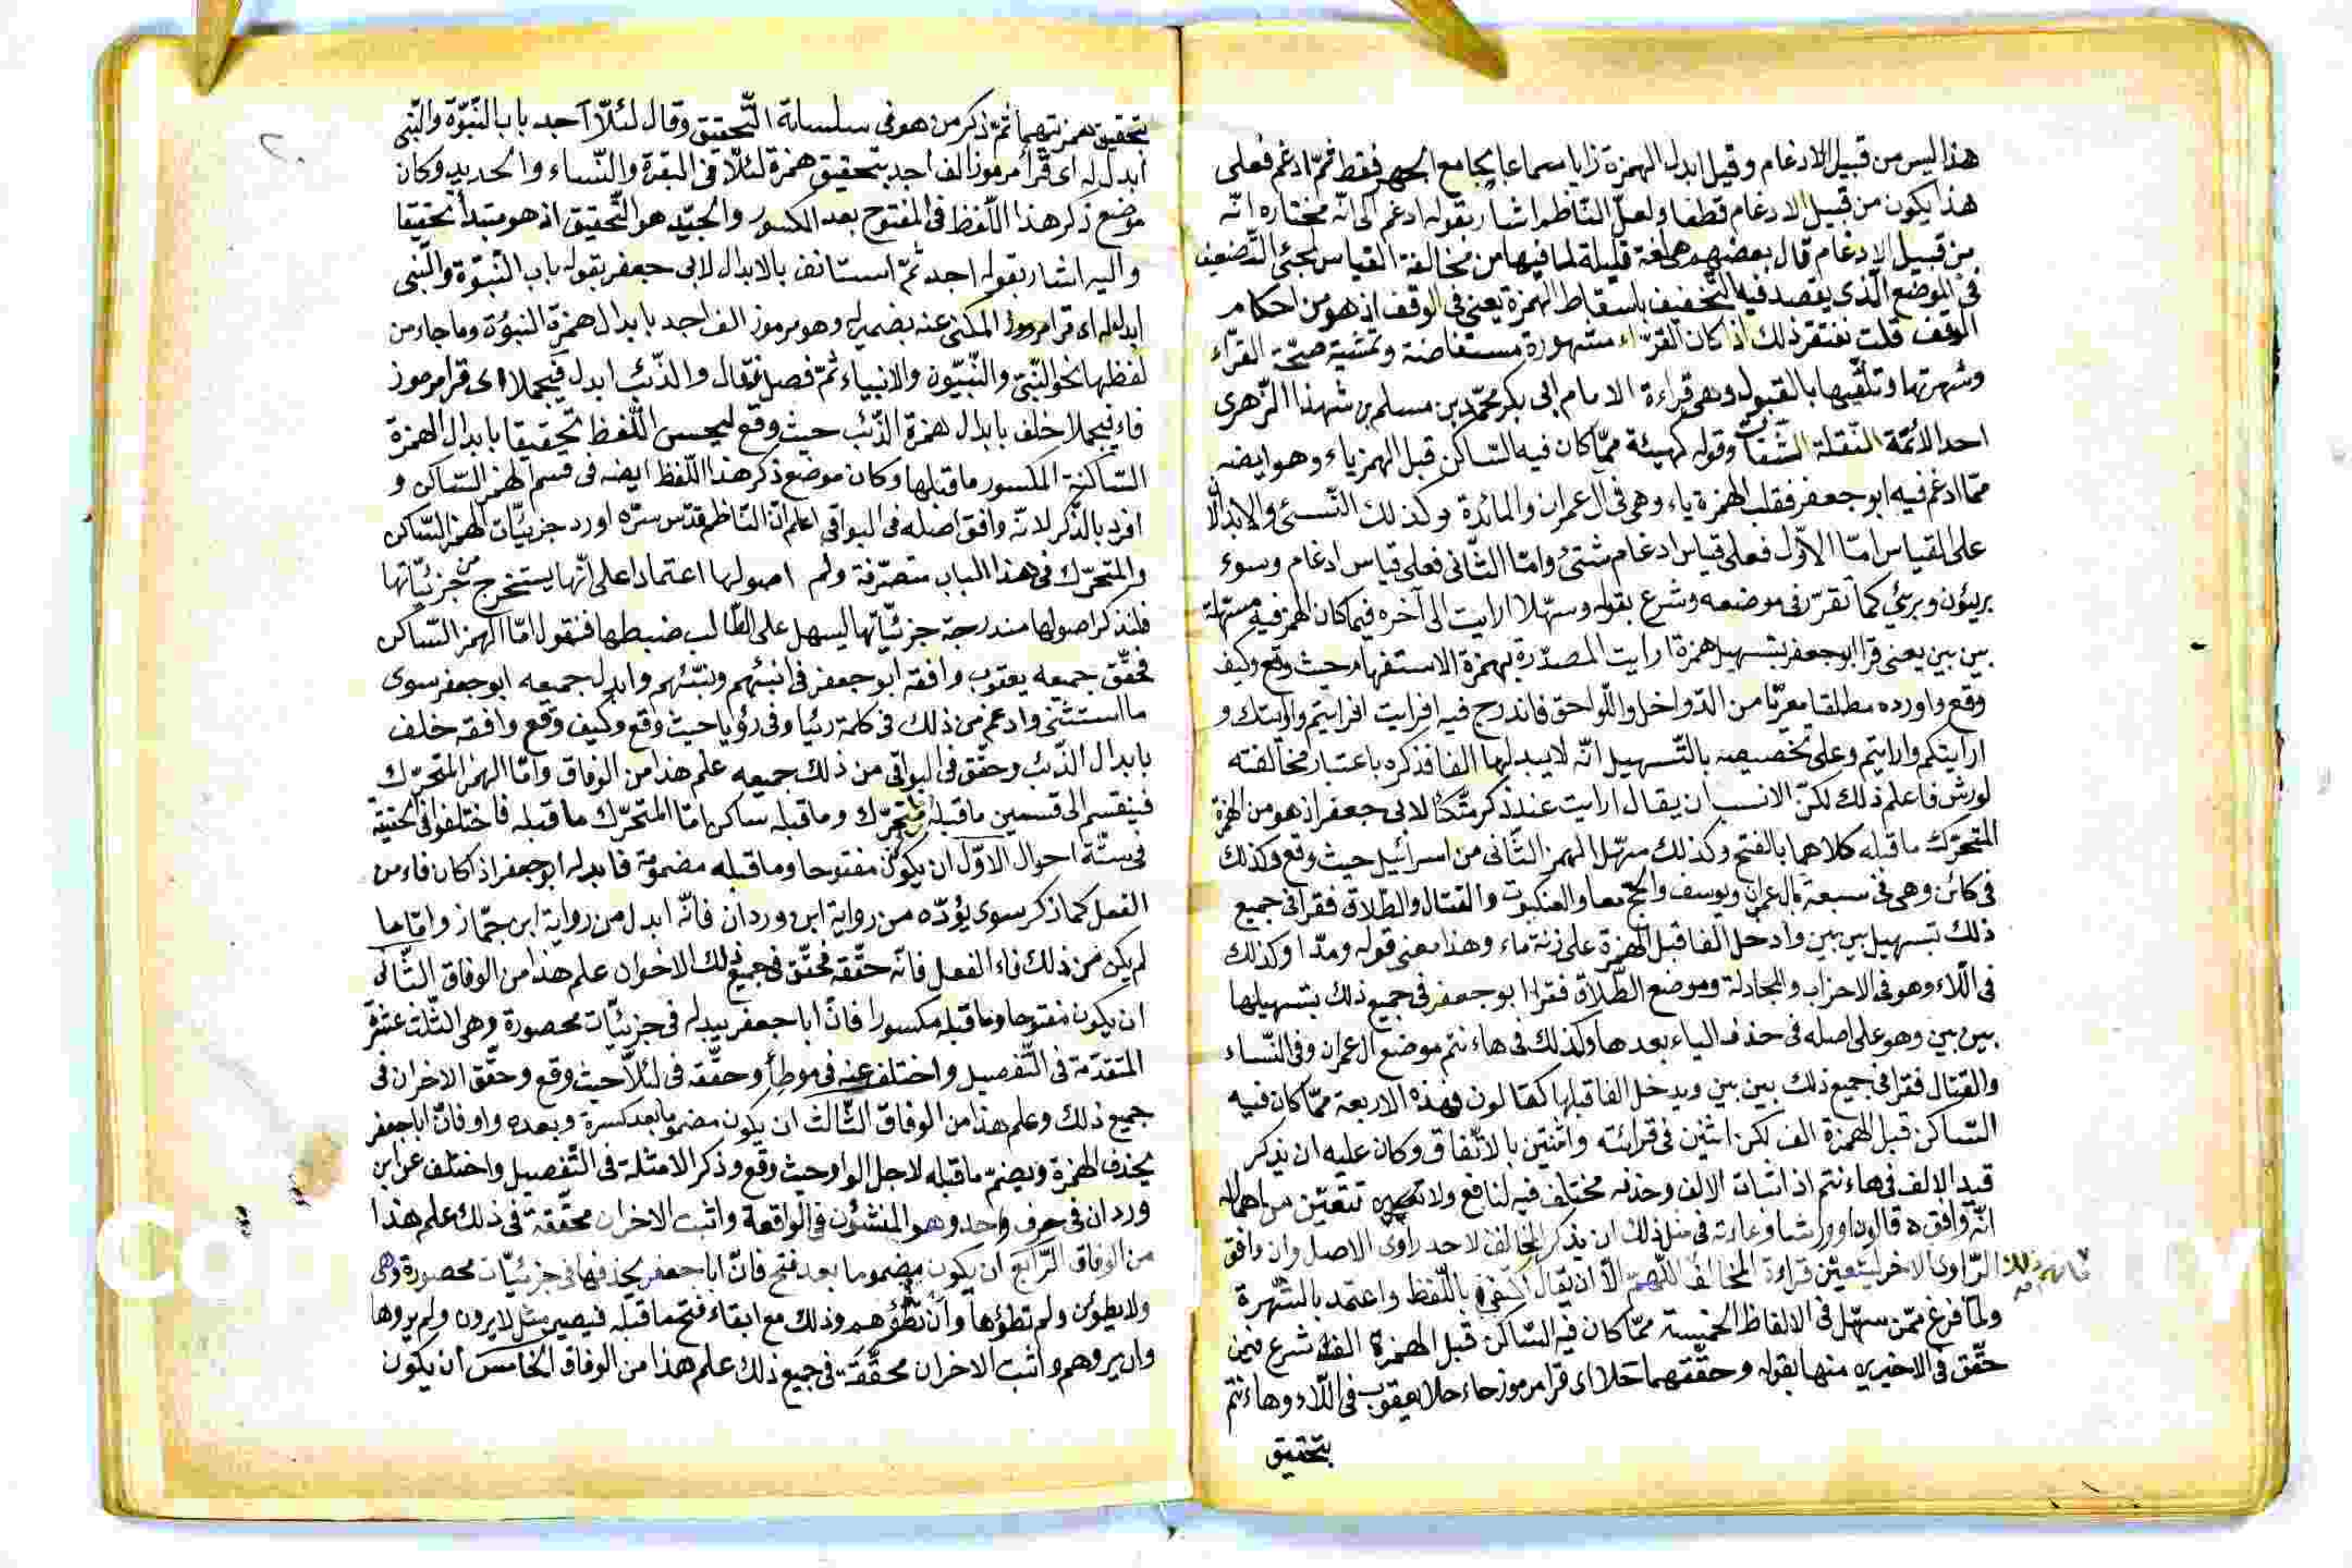 هذا ليس من قبيل الادغام وقيل ابدل الهمزة زايا سماعا بجامع الجهر فقط ثمّ ادغم فعلى
هذا يكون من قبيل الادغام قطعا ولعلّ النّاظم اشار بقوله ادغم الى انّه مختاره انّه
من قبيل الادغام قال بعضهم هى لغة قليلة لما فيها من مخالفة القياس لمجئ التّضعيف
فى الموضع الّذى يقصد فيه التّخفيف باسقاط الهمزة يعنى فى الوقف اذ هو من احكام
الوقف قلت نغتفر ذلك اذ كان القرّاء مشهورة مستفاضة وتمشية صحّة القرّاء
وشهرتها وتلقّيها بالقبول وهى قراءة الامام ابى بكر محمّد بن مسلم بن شهذا الزّهرى
احد الائمّة النّقلة الثّقات وقوله كهيئة ممّا كان فيه السّاكن قبل الهمز ياء وهو ايضه
ممّا ادغم فيه ابو جعفر فقلب الهمزة ياء وهى فى آل عمران والمائدة وكذلك النّسئ والابدالّا
على القياس امّا الاوّل فعلى قياس ادغام شتئ وامّا الثّانى فعلى قياس ادغام وسوء
بريئون وبرئ كما تقرّر فى موضعه وشرع بقوله وسهّلا ارايت الى آخره فيما كان الهمز فيه مسهّلة
بين بين يعنى قرا ابو جعفر بتسهيل همزة ارايت المصدّرة بهمزة الاستفهام حيث وقع وكيف
وقع واورده مطلقا معرّيا من الدّواخل واللّواحق فاندرج فيه افرايت افرايتم وارايتك و
ارايتكم وارايتم وعلى تخصيصه بالتّسهيل انّه لا يبدلها الفا فذكره باعتبار مخالفته
لورش فاعلم ذلك لكنّ الانسب ان يقال ارايت عند ذكر متّكأ لابى جعفر اذ هو من الهمزة
المتحرّك ما قبله كلاهما بالفتح وكذلك سهّل الهمز الثّانى من اسرائيل حيث وقع وكذلك
فى كائن وهى فى سبعة بال عمران ويوسف والحجّ معا والعنكبوت والقتال والطّلاق فقرا فى جميع
ذلك بتسهيل بين بين وادخل الفا قبل الهمزة على زنة ماء وهذا معنى قوله ومدّا وكذلك
فى اللّاء وهو فى الاحزاب والمجادلة وموضع الطّلاق فقرا ابو جعفر فى جميع ذلك بتسهيلها
بين بين وهو على اصله فى حذف الياء بعدها وكذلك فى هاء نتم موضع ال عمران وفى النّساء
والقتال فقرا فى جميع ذلك بين بين ويدخل الفا قبلها كقالون فهذه الاربعة ممّا كان فيه
السّاكن قبل الهمزة الف لكن اثنين فى قرائته واثنتين بالاتّفاق وكان عليه ان يذكر
قيد الالف فى هاء نتم اذ اثبات الالف وحذفه مختلف فيه لنافع ولا تتعيّن من اهماله
انّه وافق قالون او ورشا وعادته فى مثل ذلك ان يذكر المخالف لاحد راوى الاصل وان وافق
الرّاوى الاخر ليتعيّن قراءة المخالف اللّهمّ الّا ان يقال اكتفى باللّفظ واعتمد بالشّهرة
ولمّا فرغ ممّن سهّل فى الالفاظ الخمسة ممّا كان فيه السّاكن قبل الهمزة الف شرع فيمن
حقّق فى الاخيرين منها بقوله وحقّقهما حلا اى قرا مرموز حاء حلا يعقوب فى اللّاء وهاء نتم
بتحقيق
بتحقيق همزتيهما ثمّ ذكر من هو فى سلسلة التّحقيق وقال لئلّا آجد باب النّبوّة والنّبى
ابدل له اى قرأ مرموز الف اجد بتحقيق همزة لئلّا فى البقرة والنّساء والحديد وكان
موضع ذكر هذا اللّفظ فى المفتوح بعد الكسور والجيّد هو التّحقيق اذ هو مبتدأ تحقيقا
واليه اشار بقوله اجد ثمّ استانف بالابدال لابى جعفر بقوله باب النّبوّة والنّبى
ابدل له اى قرا مرموز المكنى عنه بضمير له وهو مرموز الف اجد بابدال همزة النبوّة وما جاء من
لفظها نحو النّبىّ والنّبيّون والانبياء ثمّ فصل فقال والذّئب ابدل فيجملا اى قرا مرموز
فاء فيجملا خلف بابدال همزة الذّئب حيث وقع ليحسن اللّفظ تحقيقا بابدال الهمزة
السّاكنة المكسور ما قبلها وكان موضع ذكر هذا اللّفظ ايضه فى قسم الهمز السّاكن و
افرد بالذّكر لانّه وافق اصله فى البواقى اعلم انّ النّاظم قدّس سرّه اورد جزئيّات الهمز السّاكن
والمتحرّك فى هذا الباب متصرّفة ولم اصولها اعتمادا على انّها يستخرج من جزئيّاتها
فلنذكر اصولها مندرجة جزئيّاتها ليسهل على الطّالب ضبطها فنقول امّا الهمز السّاكن
فحقّق جميعه يعقوب وافقه ابو جعفر فى انبئهم ونبّئهم وابدل جميعه ابو جعفر سوى
ما استثنى وادغم من ذلك فى كلمة رئيا وفى رؤيا حيث وقع وكيف وقع وافقه خلف
بابدال الذّئب وحقّق فى البواقى من ذلك جميعه علم هذا من الوفاق وامّا الهمز المتحرّك
فينقسم الى قسمين ما قبله متحرّك وما قبله ساكن امّا المتحرّك ما قبله فاختلفوا فى تخفيفه
فى ستّة احوال الاوّل ان يكون مفتوحا وما قبله مضمومة فابدله ابو جعفر اذ اكان فاء من
الفعل كما ذكر سوى يؤدّه من رواية ابن وردان فانّه ابدل من رواية ابن جمّاز وامّا ما
لم يكن من ذلك فاء الفعل فانّه حقّقه فحقّق فى جميع ذلك الاخوان علم هذا من الوفاق الثّانى
ان يكون مفتوحا وما قبله مكسورا فانّ ابا جعفر يبدله فى جزئيّات محصورة وهى الثّلث عشرة
المتقدّمة فى التّفصيل واختلف عنه فى موطأ وحقّقه فى لئلّا حيث وقع وحقّق الاخران فى
جميع ذلك وعلم هذا من الوفاق الثّالث ان يكون مضموما بعد كسرة وبعده واو فانّ ابا جعفر
يحذف الهمزة ويضمّ ما قبله لاجل الواو حيث وقع وذكر الامثلة فى التّفصيل واختلف عن ابن
وردان فى حرف واحد وهو المنشؤن فى الواقعة واثبت الاخران محقّقة فى ذلك علم هذا
من الوفاق الرّابع ان يكون مضموما بعد فتح فانّ ابا جعفر يحذفها فى جزئيّات محصورة وهى
ولا يطؤن ولم تطؤها وان تطؤهم وذلك مع ابقاء فتح ما قبله فيصير مثل لا يرون ولم يروها
وان يروهم واثبت الاخران محقّقة فى جميع ذلك علم هذا من الوفاق الخامس ان يكون